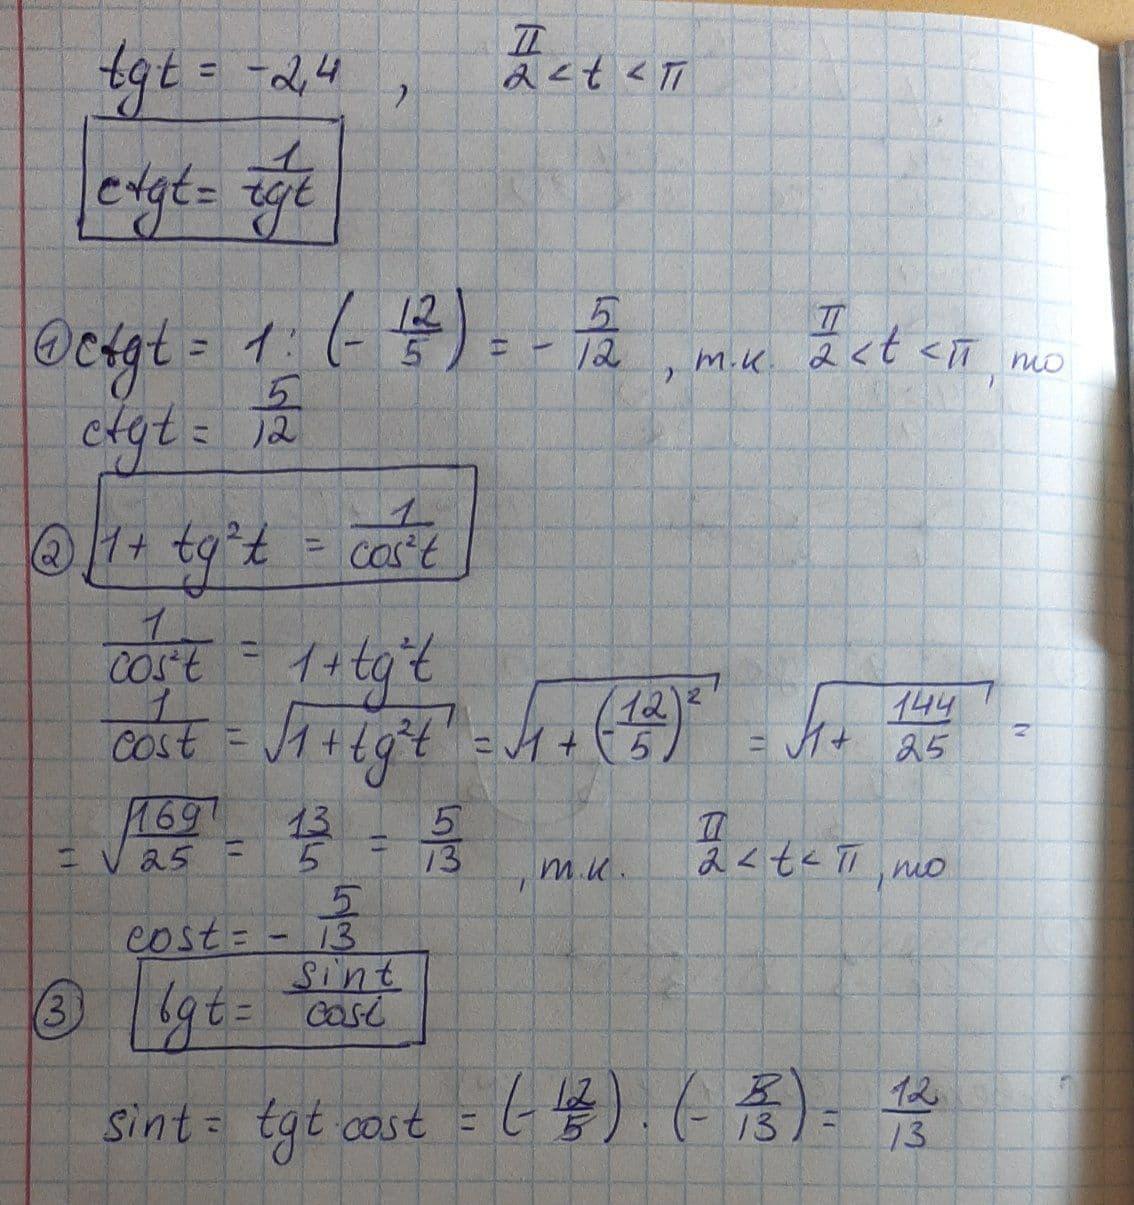 tgt = -2,4 , π/2 < t < π
ctgt = 1/tgt
① ctgt = 1 : (- 12/5) = - 5/12 , т.к. π/2 < t < π, то
ctgt = 5/12
② 1 + tg²t = 1/cos²t
1/cos²t = 1 + tg²t
1/cost = √(1 + tg²t) = √(1 + (-12/5)²) = √(1 + 144/25) =
= √(169/25) = 13/5 = 5/13 , т.к. π/2 < t < π, то
cost = - 5/13
③ tgt = sint/cost
sint = tgt · cost = (- 12/5) · (- 5/13) = 12/13